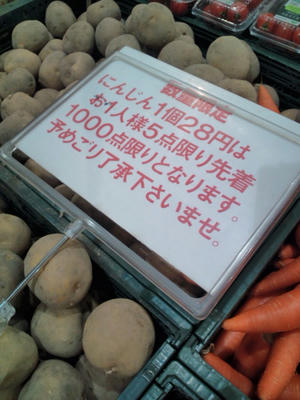 数量限定
にんじん1個28円は
お1人様5点限り先着
1000点限りとなります。
予めご了承下さいませ。